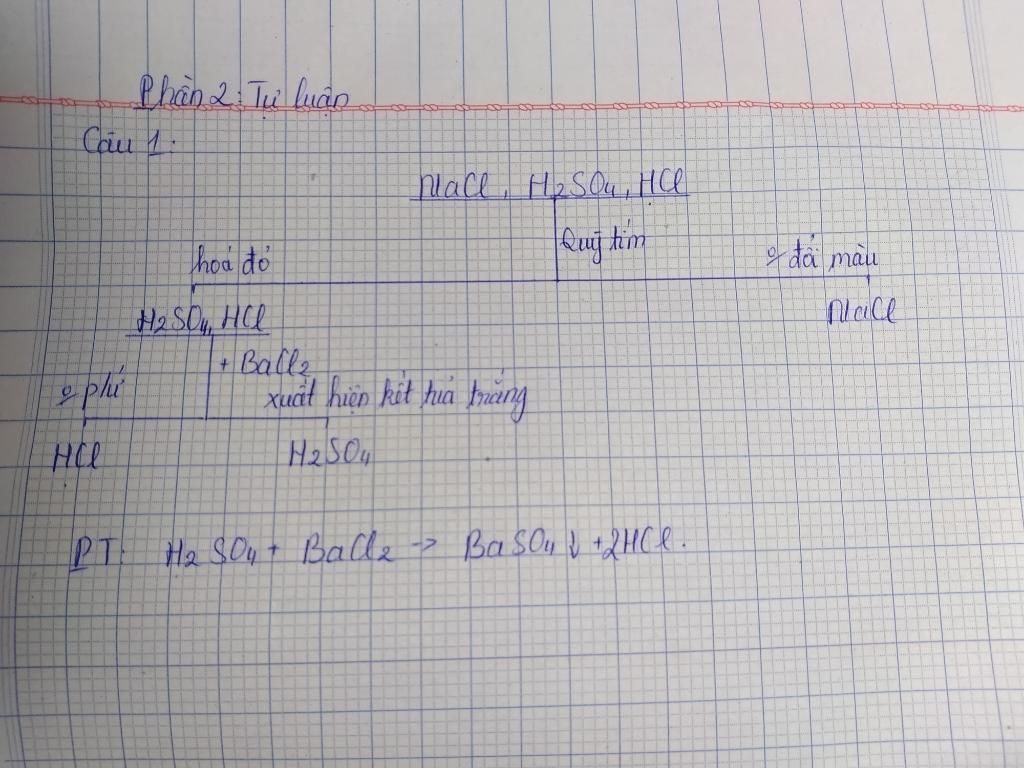 Phần 2: Tự luận
Câu 1:
NaCl, H2SO4, HCl
Quỳ tím
hoá đỏ
đổi màu
H2SO4, HCl
NaCl
+ BaCl2
xuất hiện kết tủa trắng
HCl
H2SO4
PT: H2SO4 + BaCl2 → BaSO4↓ + 2HCl.